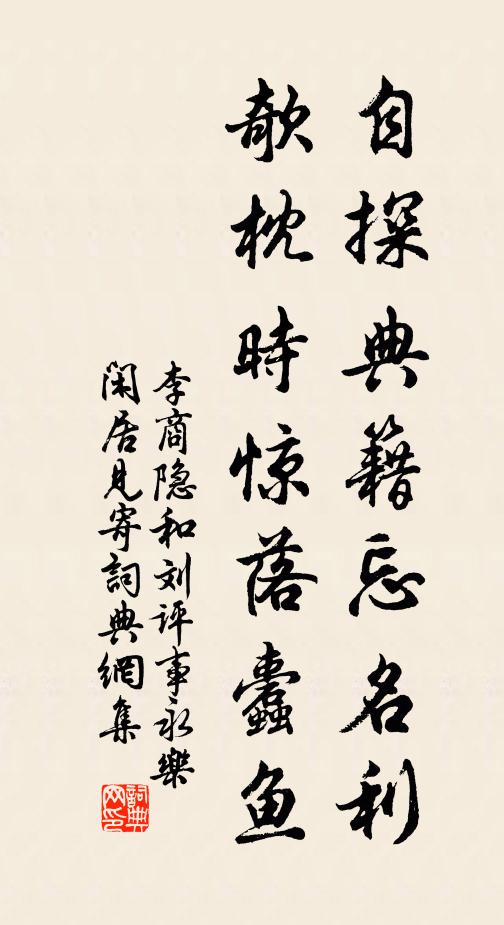 自探典籍忘名利
欹枕時惊落蠹鱼
李商隐和刘评事永樂
闲居見寄詞典網集
詞典网印